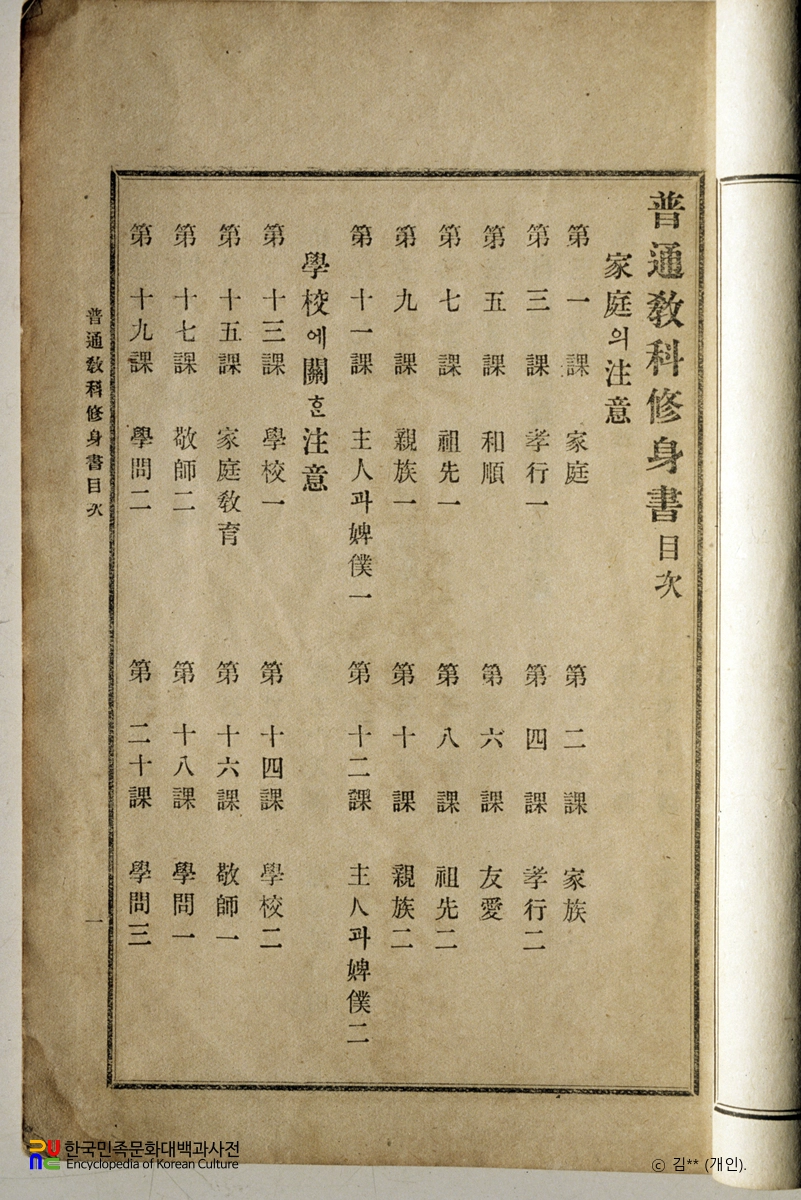 普通敎科修身書目次
家庭의注意
第一課 家庭 第二課 家族
第三課 孝行一 第四課 孝行二
第五課 和順 第六課 友愛
第七課 祖先一 第八課 祖先二
第九課 親族一 第十課 親族二
第十一課 主人과婢僕一 第十二課 主人과婢僕二
學校에關ᄒᆞᆫ注意
第十三課 學校一 第十四課 學校二
第十五課 家庭敎育 第十六課 敬師一
第十七課 敬師二 第十八課 學問一
第十九課 學問二 第二十課 學問三
普通敎科修身書目次 一
한국민족문화대백과사전
Encyclopedia of Korean Culture
ⓒ 김** (개인).